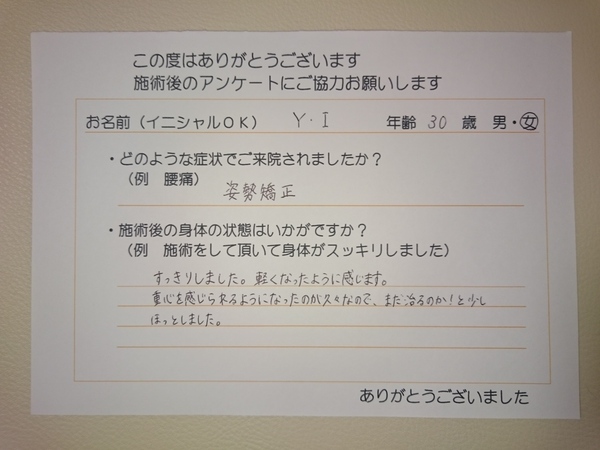 この度はありがとうございます
施術後のアンケートにご協力お願いします
お名前（イニシャルOK） Y・I 年齢 30 歳 男・女
・どのような症状でご来院されましたか？
（例 腰痛）
姿勢矯正
・施術後の身体の状態はいかがですか？
（例 施術をして頂いて身体がスッキリしました）
すっきりしました。軽くなったように感じます。
重心を感じられるようになったのが久々なので、まだ治るのか！と少し
ほっとしました。
ありがとうございました